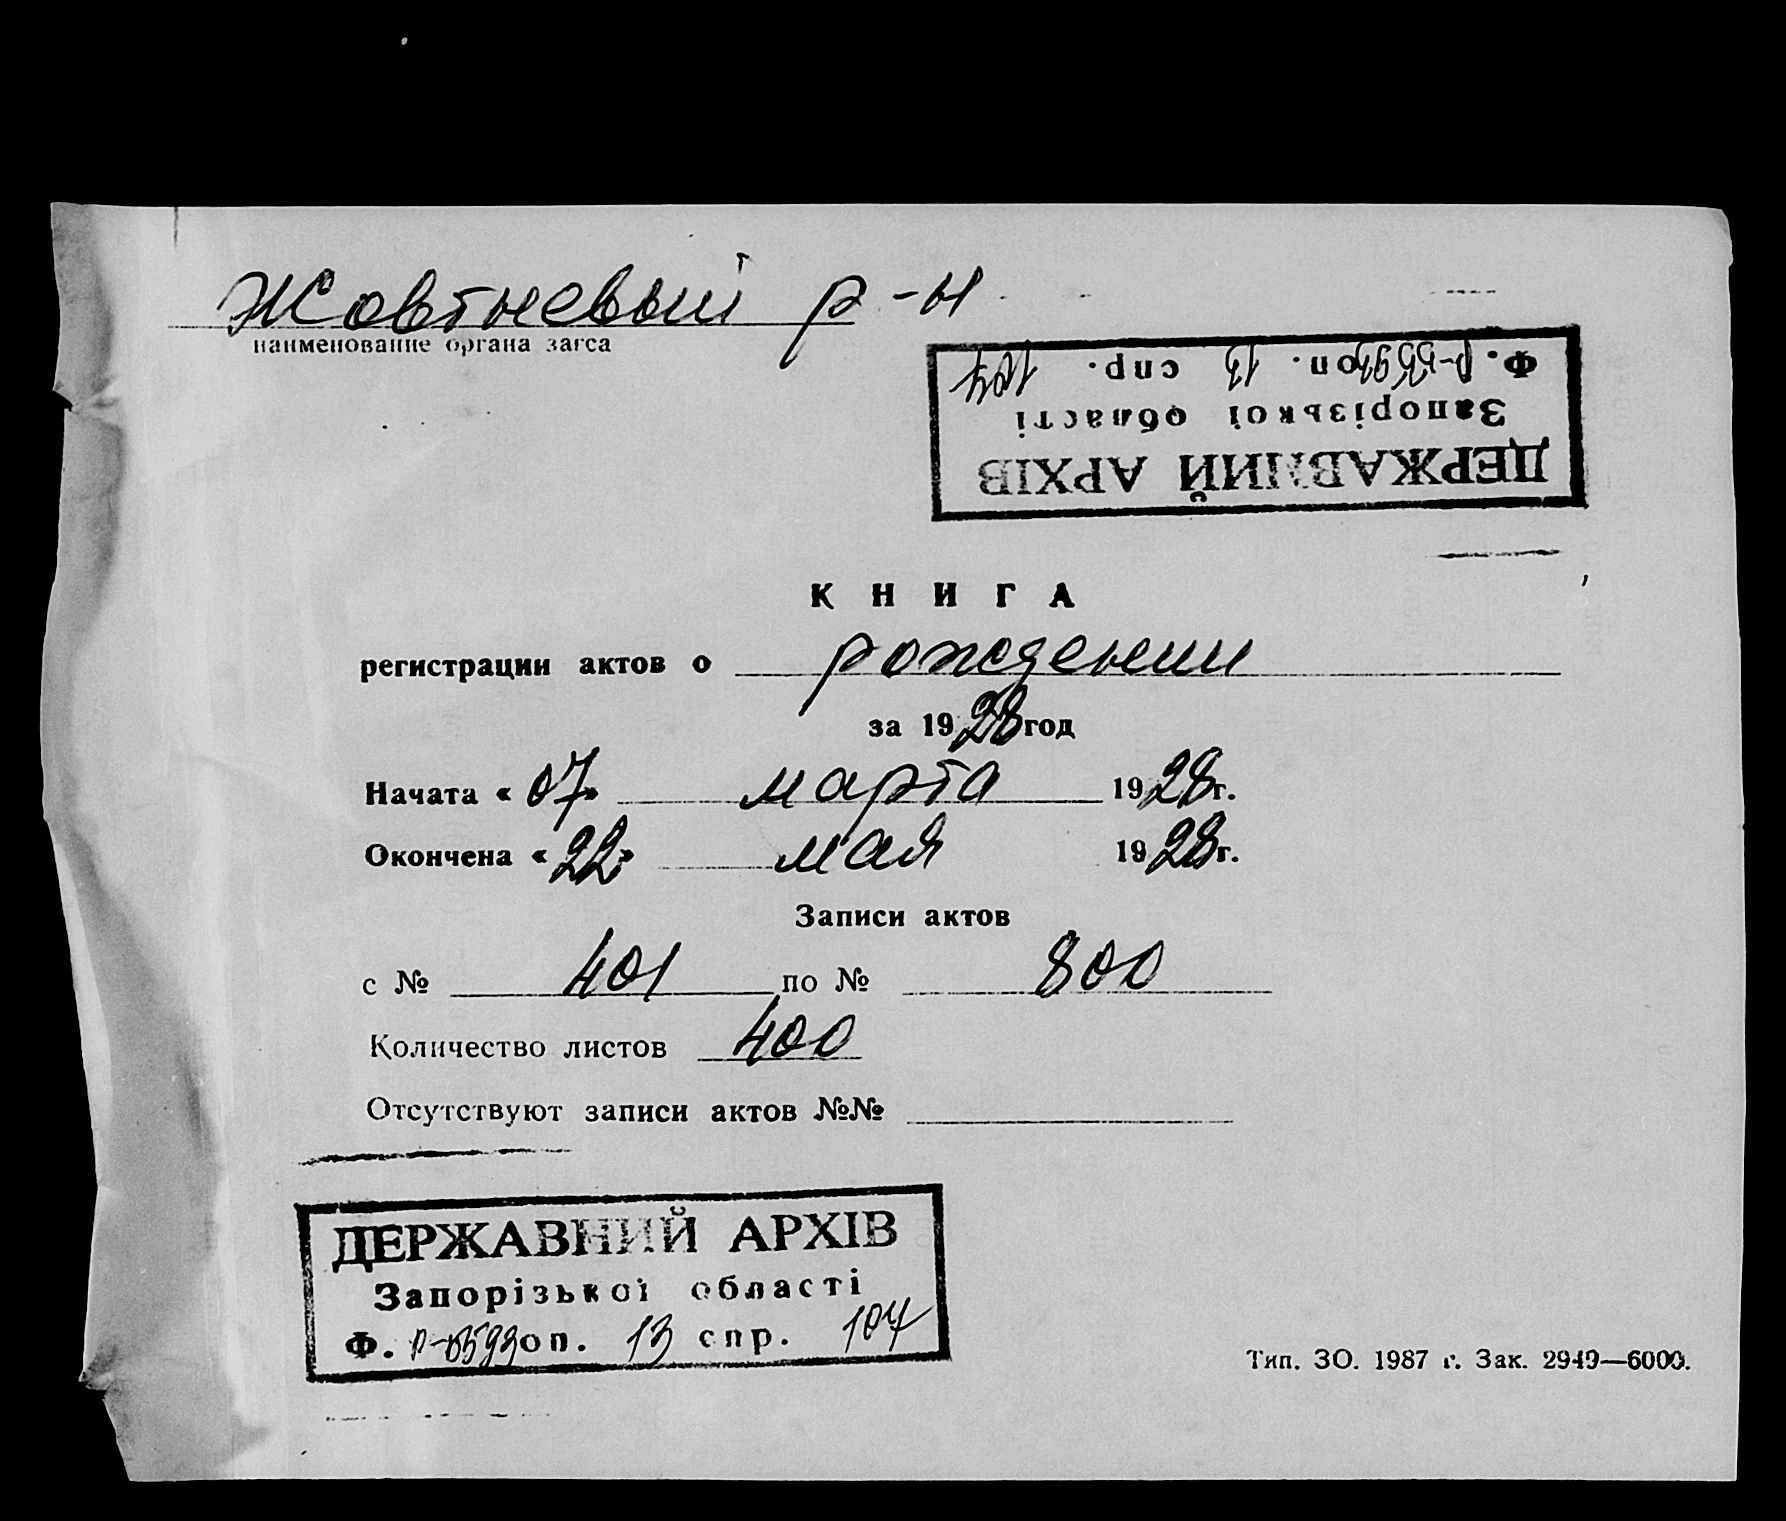 Жовтневый р-н
наименование органа загса
ДЕРЖАВНИЙ АРХІВ
Запорізької області
Ф. Р-5593 оп. 13 спр. 104
КНИГА
регистрации актов о рождении
за 1928 год
Начата «07» марта 1928 г.
Окончена «22» мая 1928 г.
Записи актов
с № 401 по № 800
Количество листов 400
Отсутствуют записи актов №№
ДЕРЖАВНИЙ АРХІВ
Запорізької області
Ф. Р-5593 оп. 13 спр. 104
Тип. ЗО. 1987 г. Зак. 2949—6000.